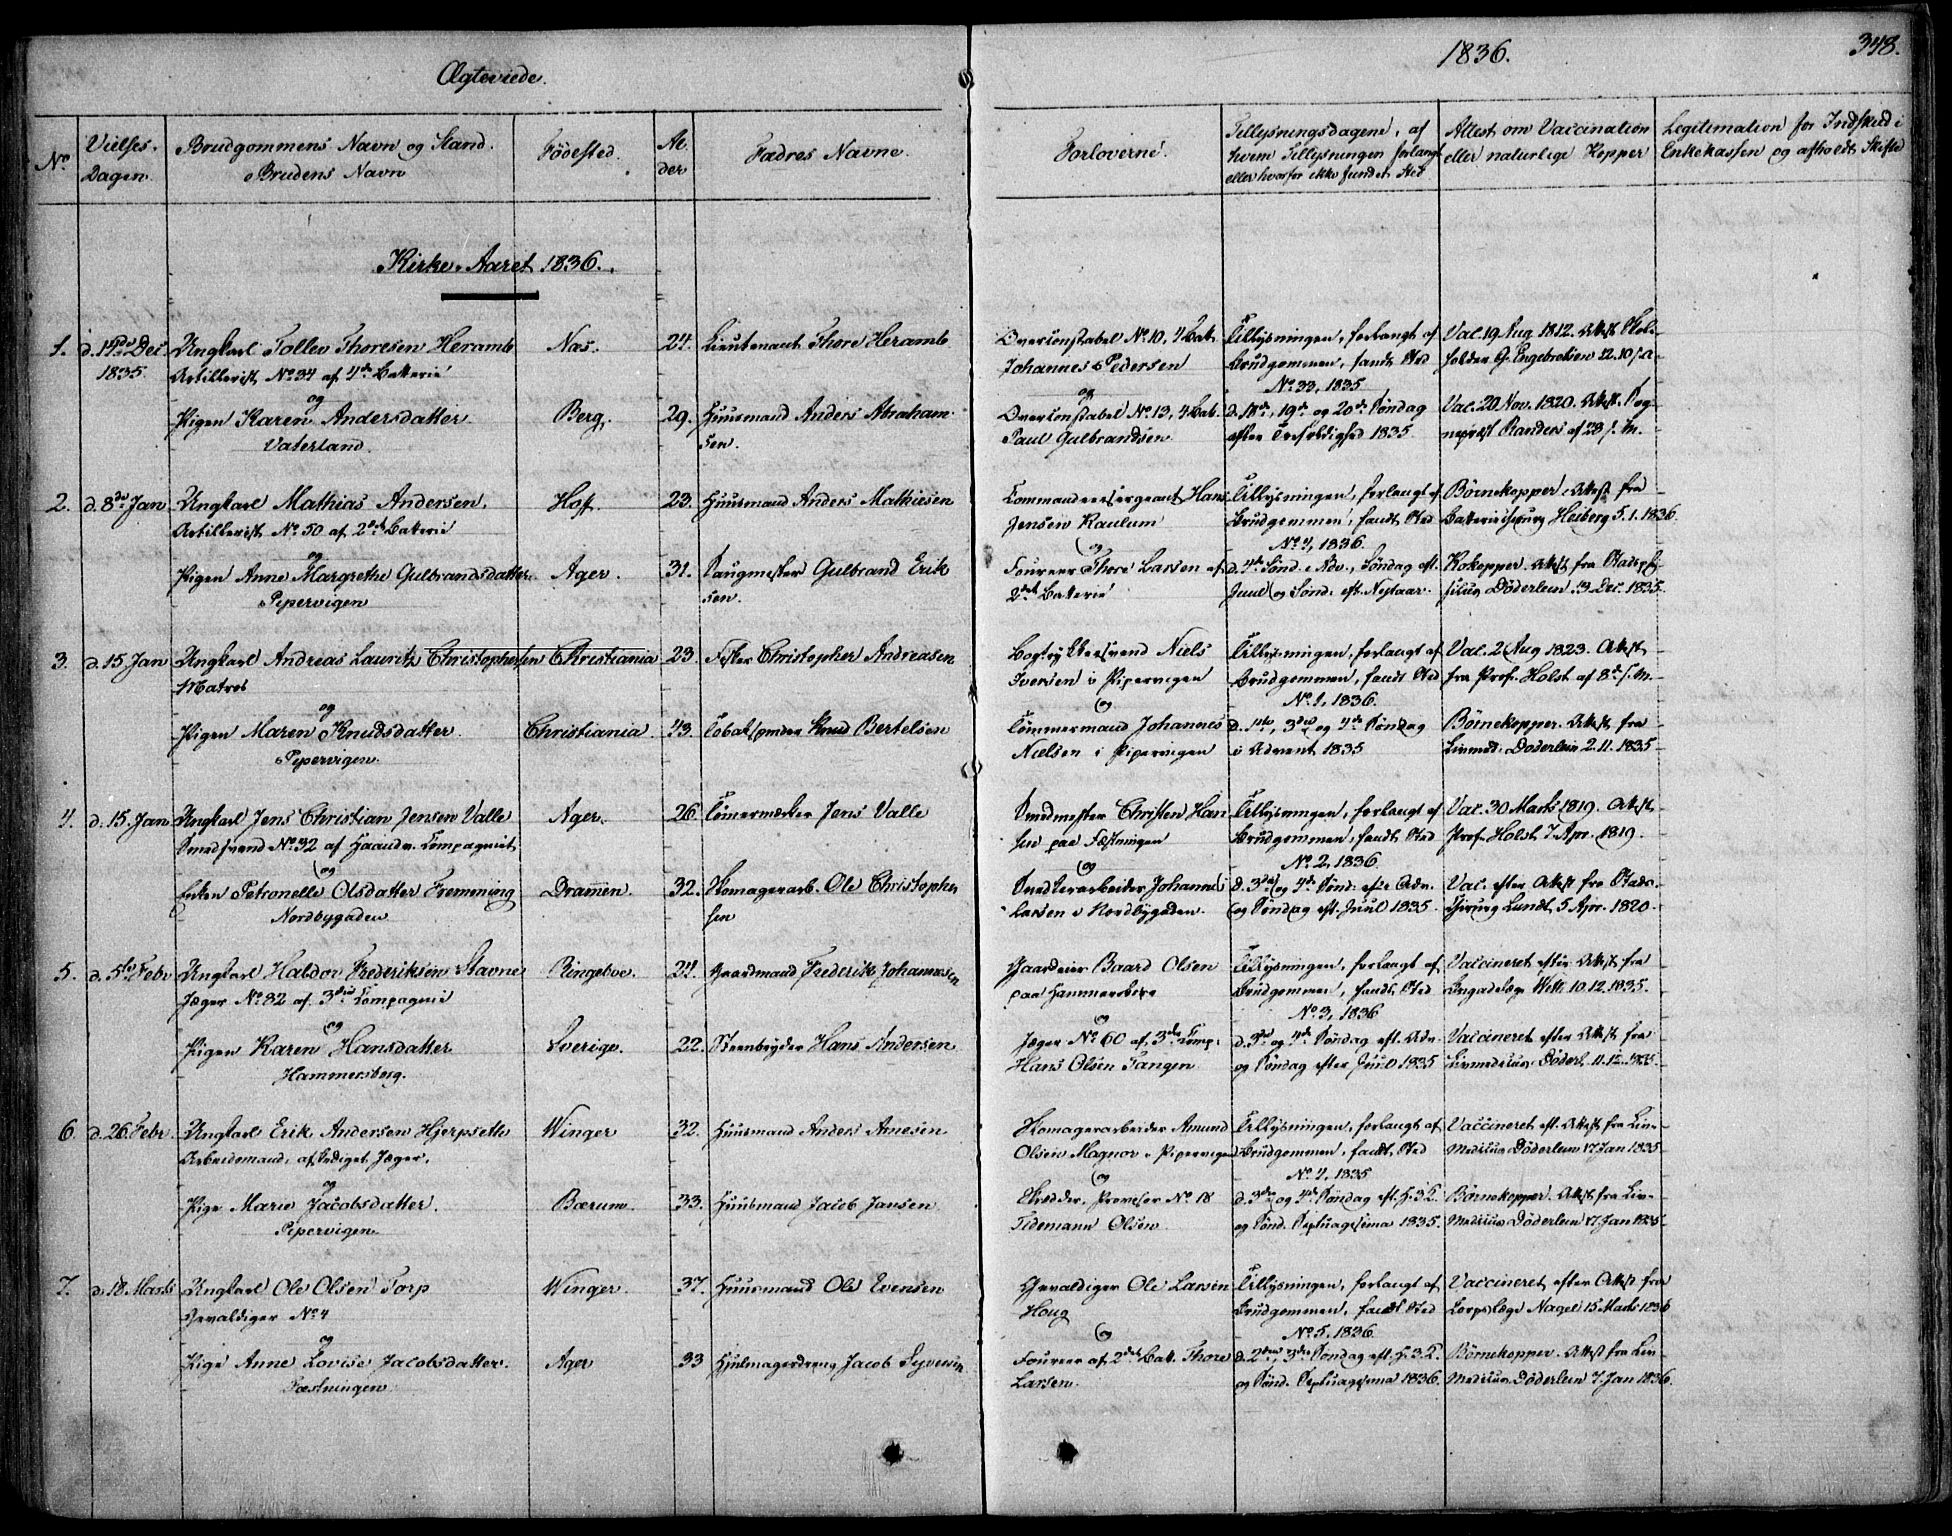 Ægteviede.
1836.
348.
No
Vielses-Dagen.
Brudgommens Navn og Stand.
Brudens Navn
Fødested.
Alder
Fædres Navne.
Forloverne.
Tillysningsdagene, af
hvem Tillysningen forlangt
eller hvorfor ikke fundet Sted
Attest om Vaccination
eller naturlige Kopper
Legitimation for Indskud i
Enkekassen og afholdt Skifte
Kirke-Aaret 1836.
1. d. 14de Dec Ungkarl Tollev Thoresen Heramb Næs. 24. Lieutenant Thore Heramb
1835. Artillerist No 34 af 4de Batterie
og
Pigen Karen Andersdatter Berg. 29. Huusmand Anders Abraham-
Vaterland. sen.
Overconstabel No 10, 4 Bat. Tillysningen, forlangt af Vac. 19 Aug. 1812. Attest
Johannes Pedersen Brudgommen, fandt Sted G. Engebretsen 22.10
og No 33, 1835
Overconstabel No 13, 4 Bat. d. 18de, 19de og 20de Søndag Vac. 20 Nov. 1820. Attest Sog-
Paul Gulbrandsen efter Trefoldighed 1835 nepræst Randers af 28
2. d. 8de Jan Ungkarl Mathias Andersen. Hoff. 23. Huusmand Anders Mathiesen
Artillerist No 50 af 2det Batterie
og
Pigen Anne Margrethe Gulbrandsdatter. Ager. 31. Saugmester Gulbrand Erik
Pipervigen sen.
Commandeersergeant Hans Tillysningen, forlangt af Børnekopper. Attest fra
Jensen Kaulum Brudgommen, fandt Sted Batteriechirurg Heiberg 5.1.1836.
og No 4, 1836.
Foureer Thore Larsen af d. 4de Sønd. i Adv., Søndag eft. Kokopper. Attest fra Stadsphy-
2det Batterie Juul og Sønd. eft. Nytaar. sicus Døderlein 13 Dec. 1835.
3. d. 15 Jan Ungkarl Andreas Lauritz Christophersen Christiania 23. Christopher Andreasen
Matros
og
Pigen Maren Knudsdatter. Christiania. 43. Tobakspinder Knud Bertelsen
Pipervigen.
Bogtrykkersvend Niels Tillysningen, forlangt af Vac. 2 Aug 1823. Attest
Iversen i Pipervigen Brudgommen, fandt Sted fra Prof. Holst af 8de s. M.
og No 1, 1836.
Tømmermand Johannes d. 1ste, 3die og 4de Søndag Børnekopper. Attest fra
Nielsen i Pipervigen i Advent 1835 Livmed. Døderlein 2.11.1835
4. d. 15. Jan Ungkarl Jens Christian Jensen Valle Ager. 26 Tømermærker Jens Valle
Smedsvend No 32 af Haandv. Compagniet
og
Enken Petronelle Olsdatter Fremming Dramen. 32. Skomagerarb. Ole Christopher
Nordbygaden sen
Smedmester Christen Han Tillysningen, forlangt af Vac. 30 Marts 1819. Attest
sen paa Fæstningen Brudgommen, fandt Sted Prof. Holst 7 Apr. 1819.
og No 2, 1836.
Snedkerarbeider Johannes d. 3die og 4de Sønd. efter Adv. Vac. efter Attest fra Stads-
Larsen i Nordbygaden. og Søndag eft. Juul 1835. chirurg Lundt, 5 Apr. 1820.
5. d. 5te Febr Ungkarl Haldor Frederiksen Stavne Ringeboe. 24. Gaardmand Frederik Johannesen
Jæger No 82 af 3die Compagnie
og
Pigen Karen Hansdatter Sverige. 22. Steenbryder Hans Andersen
Hammersberg.
Gaardeier Baard Olsen Tillysningen, forlangt af Vaccineret efter Attest fra
paa Hammersberg Brudgommen, fandt Sted Brigadelæge Will 10.12.1835.
og No 3, 1836
Jæger No 60 af 3die Comp. d. 3die og 4de Søndag eft. Adv. Vaccineret efter Attest fra
Hans Olsen Tangen og Søndag efter Juul 1835 Livmedicus Døderl. 11.12.1835.
6. d. 26. Febr. Ungkarl Erik Andersen Hjerpseth Winger 32. Huusmand Anders Arnesen
Arbeidsmand, afskediget Jæger.
og
Pige Marie Jacobsdatter. Bærum. 33. Huusmand Jacob Jansen
Pipervigen
Skomagerarbeider Amund Tillysningen, forlangt af Vaccineret eft. Attest fra Liv-
Olsen Magnor i Pipervigen Brudgommen, fandt Sted Medicus Døderlein 17 Jan 1835
og No 4, 1835
Skredder, No 18 d. 3die og 4de Søndag eft. H. 3 K. Børnekopper. Attest fra Liv-
Tidemann Olsen og Sønd. Septuagesima 1835. Medicus Døderlein 17. Jan 1835.
7. d. 18. Marts Ungkarl Ole Olsen Torp Winger. 37. Huusmand Ole Evensen
Gevaldiger No 4
og
Pige Anne Lovise Jacobsdatter. Ager 33 Hjulmagerdreng Jacob Syversen
Fæstningen
Gevaldiger Ole Larsen Tillysningen, forlangt af Vaccineret efter Attest fra
Houg Brudgommen, fandt Sted Corpslæge Nagel 15 Marts 1836
og No 5, 1836.
Foureer af 2det Batt. Thore d. 2den, 3die Søndag eft. H. 3 K. Børnekopper. Attest fra Liv-
Larsen. og Sønd. Septuagesima 1836. Medicus Døderlein 7. Jan 1836.